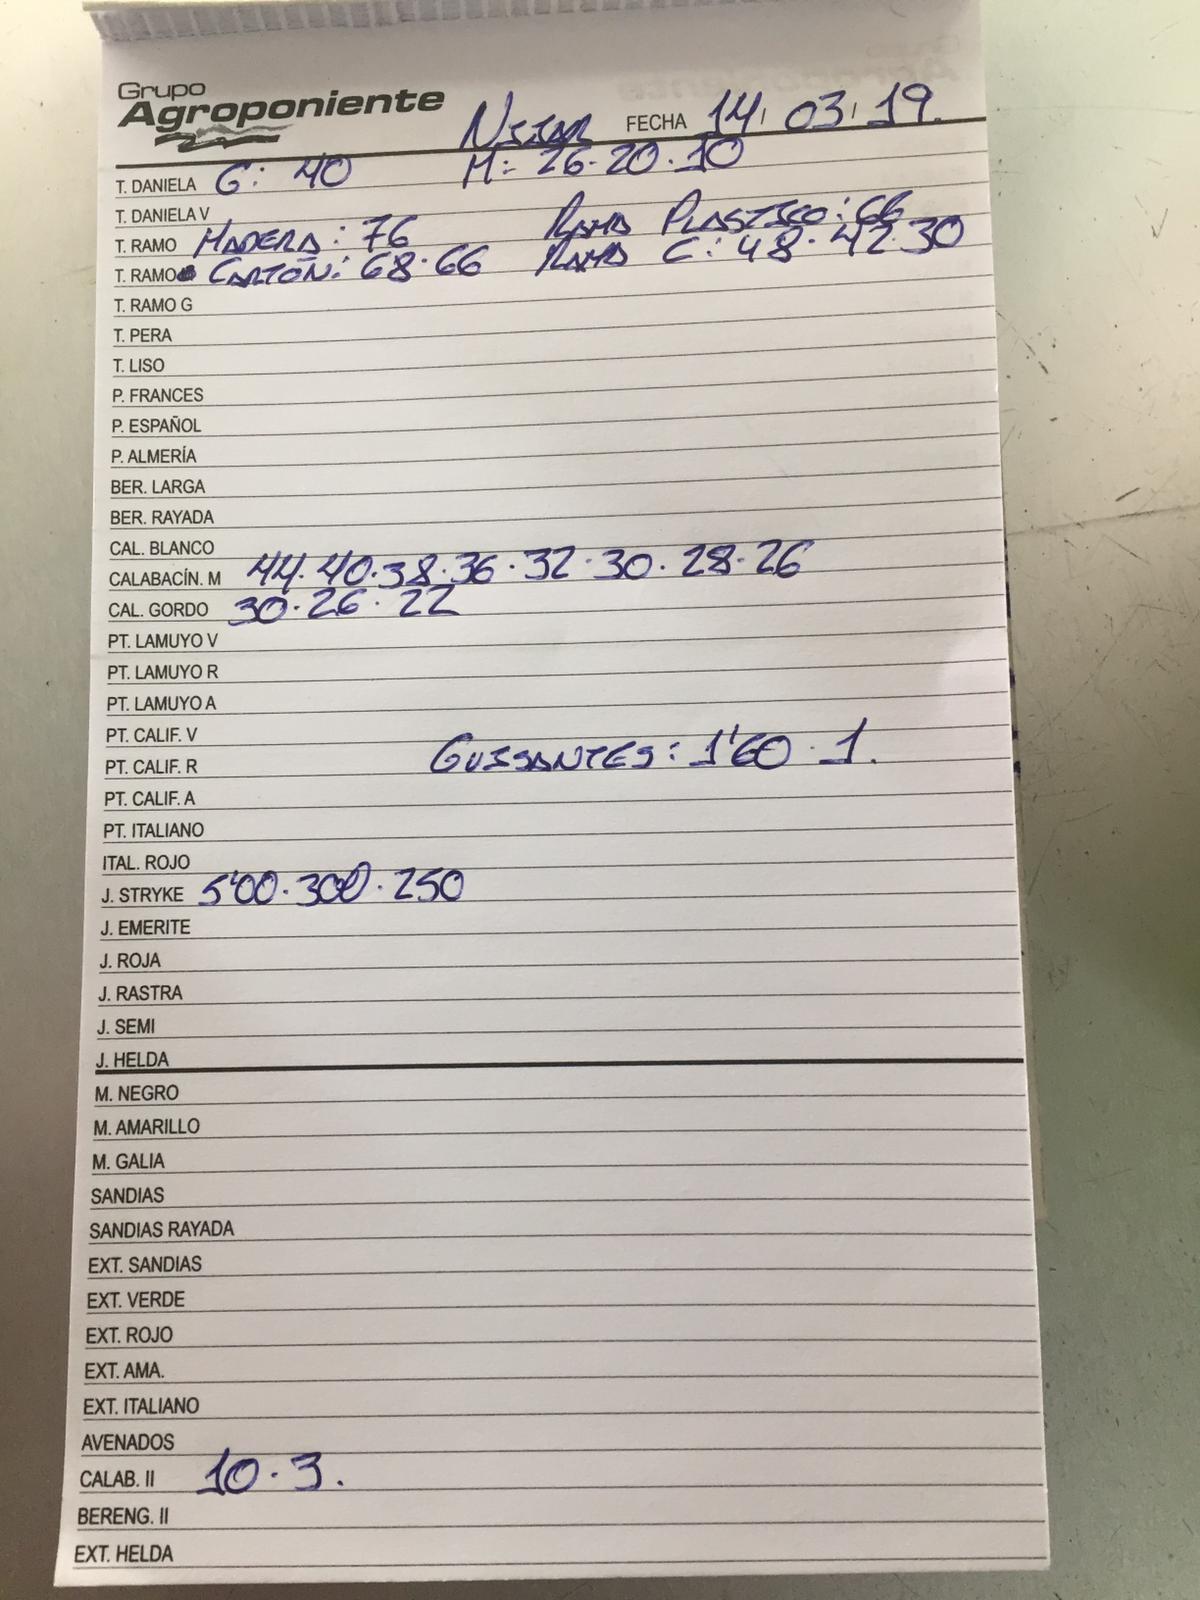 Grupo
Agroponiente
Nijar FECHA 14/ 03/ 19.
T. DANIELA G: 40 M: 26·20·10
T. DANIELA V
T. RAMO MADERA: 76 RAMA PLASTICO: 66
T. RAMO CARTÓN: 68·66 RAMA C: 48·42·30
T. RAMO G
T. PERA
T. LISO
P. FRANCES
P. ESPAÑOL
P. ALMERÍA
BER. LARGA
BER. RAYADA
CAL. BLANCO
CALABACÍN. M 44·40·38·36·32·30·28·26
CAL. GORDO 30·26·22
PT. LAMUYO V
PT. LAMUYO R
PT. LAMUYO A
PT. CALIF. V
PT. CALIF. R GUISANTES: 1'60·1.
PT. CALIF. A
PT. ITALIANO
ITAL. ROJO
J. STRYKE 5'00·300·250
J. EMERITE
J. ROJA
J. RASTRA
J. SEMI
J. HELDA
M. NEGRO
M. AMARILLO
M. GALIA
SANDIAS
SANDIAS RAYADA
EXT. SANDIAS
EXT. VERDE
EXT. ROJO
EXT. AMA.
EXT. ITALIANO
AVENADOS
CALAB. II 10·3.
BERENG. II
EXT. HELDA